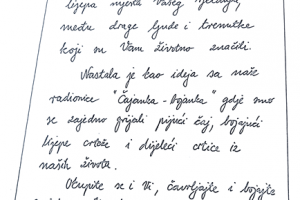 lijepa mjesta Vašeg sjećanja,
među drage ljude i trenutke
koji su Vam životno značili.
Nastala je kao ideja sa naše
radionice "Čajanka - bojanka" gdje smo
se zajedno grijali pijući čaj, bojajući
lijepe crteže i dijeleći crtice iz
naših života.
Okupite se i Vi, čavrljajte i bojajte